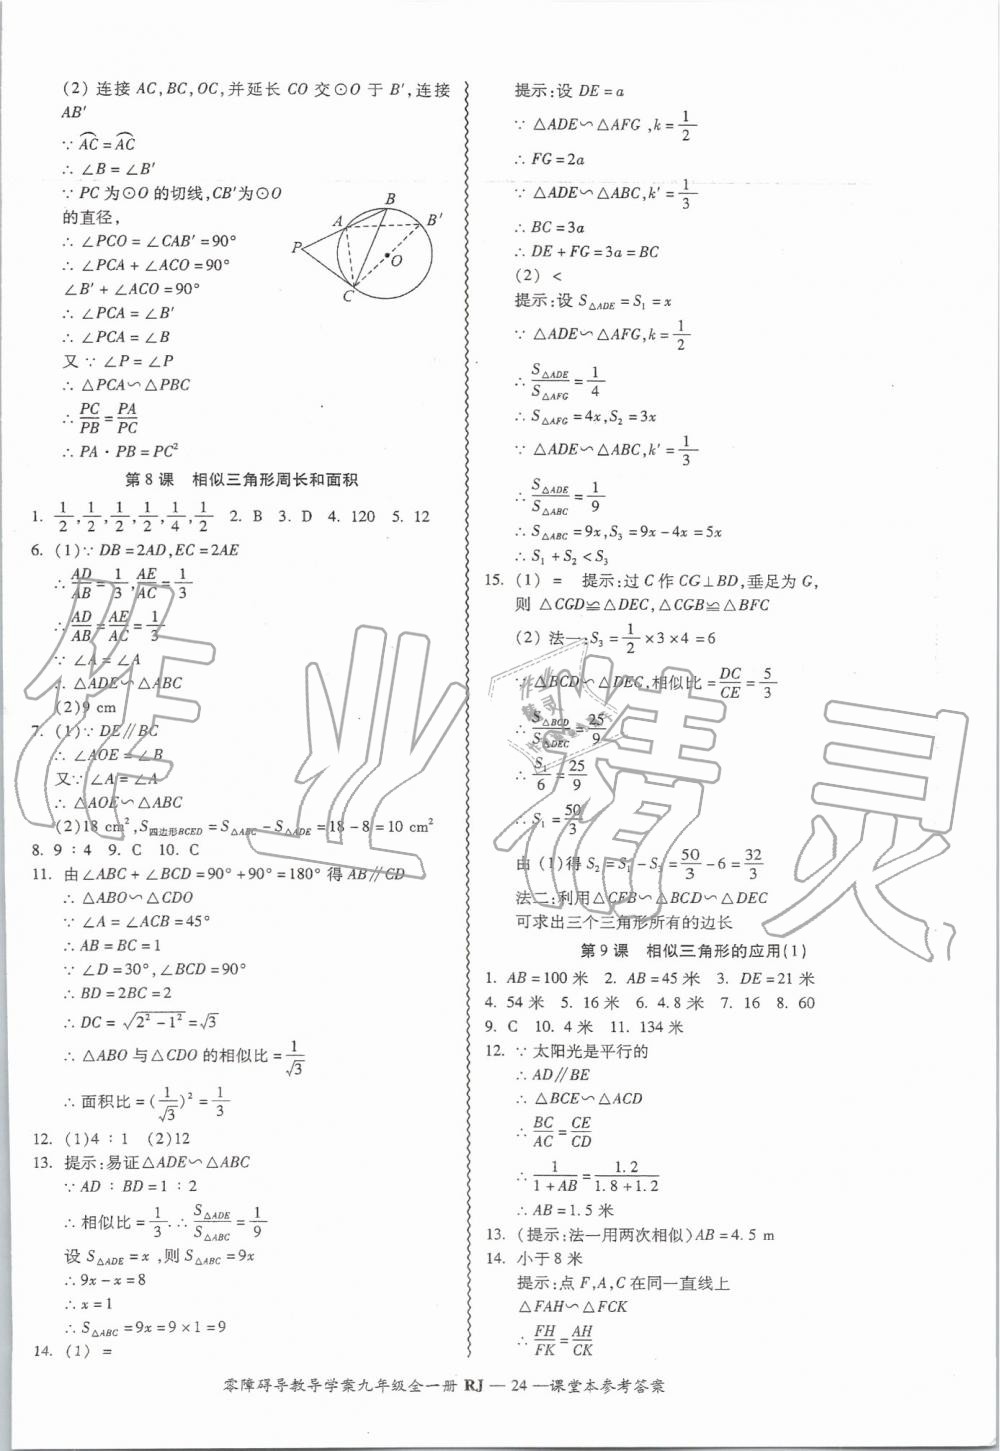 (2) 连接 AC,BC,OC,并延长 CO 交⊙O 于 B′,连接
AB′
∵ AC=AC
∴ ∠B=∠B′
∵ PC 为⊙O 的切线,CB′为⊙O
的直径,
∴ ∠PCO=∠CAB′=90°
∴ ∠PCA+∠ACO=90°
∠B′+∠ACO=90°
∴ ∠PCA=∠B′
∴ ∠PCA=∠B
又 ∵ ∠P=∠P
∴ △PCA∽△PBC
∴ PC/PB=PA/PC
∴ PA·PB=PC²
A B B′ P O C
第 8 课 相似三角形周长和面积
1. 1/2,1/2,1/2,1/2,1/4,1/2 2. B 3. D 4. 120 5. 12
6. (1)∵ DB=2AD,EC=2AE
∴ AD/AB=1/3,AE/AC=1/3
∴ AD/AB=AE/AC=1/3
∵ ∠A=∠A
∴ △ADE∽△ABC
(2)9 cm
7. (1)∵ DE∥BC
∴ ∠AOE=∠B
又∵ ∠A=∠A
∴ △AOE∽△ABC
(2)18 cm²,S四边形BCED=S△ABC-S△ADE=18-8=10 cm²
8. 9∶4 9. C 10. C
11. 由∠ABC+∠BCD=90°+90°=180°得 AB∥CD
∴ △ABO∽△CDO
∵ ∠A=∠ACB=45°
∴ AB=BC=1
∵ ∠D=30°,∠BCD=90°
∴ BD=2BC=2
∴ DC=√(2²-1²)=√3
∴ △ABO 与△CDO 的相似比=1/√3
∴ 面积比=(1/√3)²=1/3
12. (1)4∶1 (2)12
13. 提示:易证△ADE∽△ABC
∵ AD∶BD=1∶2
∴ 相似比=1/3.∴ S△ADE/S△ABC=1/9
设 S△ADE=x,则 S△ABC=9x
∴ 9x-x=8
∴ x=1
∴ S△ABC=9x=9×1=9
14. (1) =
提示:设 DE=a
∵ △ADE∽△AFG,k=1/2
∴ FG=2a
∵ △ADE∽△ABC,k′=1/3
∴ BC=3a
∴ DE+FG=3a=BC
(2) <
提示:设 S△ADE=S₁=x
∵ △ADE∽△AFG,k=1/2
∴ S△ADE/S△AFG=1/4
∴ S△AFG=4x,S₂=3x
∵ △ADE∽△ABC,k′=1/3
∴ S△ADE/S△ABC=1/9
∴ S△ABC=9x,S₃=9x-4x=5x
∴ S₁+S₂<S₃
15. (1) = 提示:过 C 作 CG⊥BD,垂足为 G,
则 △CGD≌△DEC,△CGB≌△BFC
(2) 法一:S₃=1/2×3×4=6
∵ △BCD∽△DEC,相似比=DC/CE=5/3
∴ S△BCD/S△DEC=25/9
∴ S₁/6=25/9
∴ S₁=50/3
由 (1)得 S₂=S₁-S₃=50/3-6=32/3
法二:利用△CFB∽△BCD∽△DEC
可求出三个三角形所有的边长
第 9 课 相似三角形的应用(1)
1. AB=100 米 2. AB=45 米 3. DE=21 米
4. 54 米 5. 16 米 6. 4.8 米 7. 16 8. 60
9. C 10. 4 米 11. 134 米
12. ∵ 太阳光是平行的
∴ AD∥BE
∴ △BCE∽△ACD
∴ BC/AC=CE/CD
∴ 1/(1+AB)=1.2/(1.8+1.2)
∴ AB=1.5 米
13. (提示:法一用两次相似)AB=4.5 m
14. 小于 8 米
提示:点 F,A,C 在同一直线上
△FAH∽△FCK
∴ FH/FK=AH/CK
零障碍导教导学案九年级全一册 RJ — 24 —课堂本参考答案
作业精灵